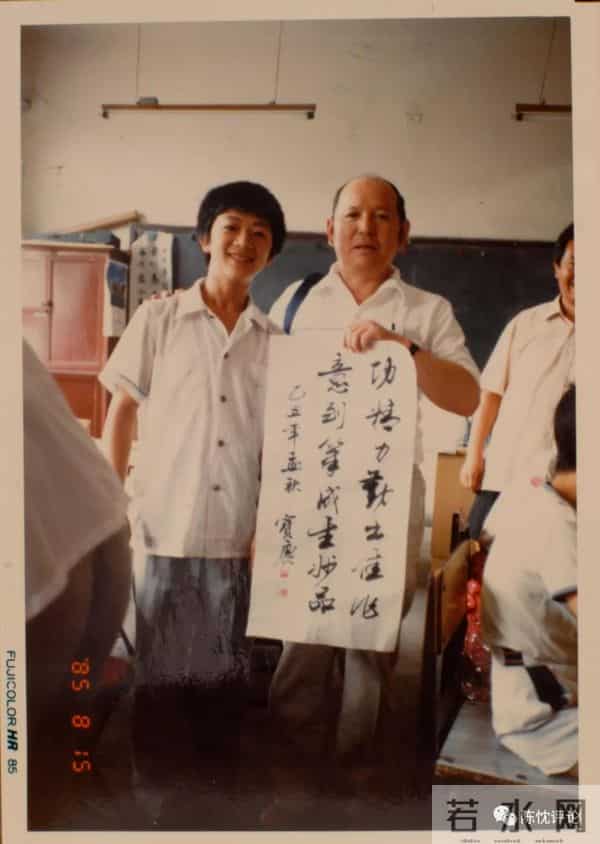 功精力勤出佳作
意到筆成畫妙品
乙丑年孟秋 寶慶
FUJICOLOR HR 85
'85 8 15
若水网
陈忱评论